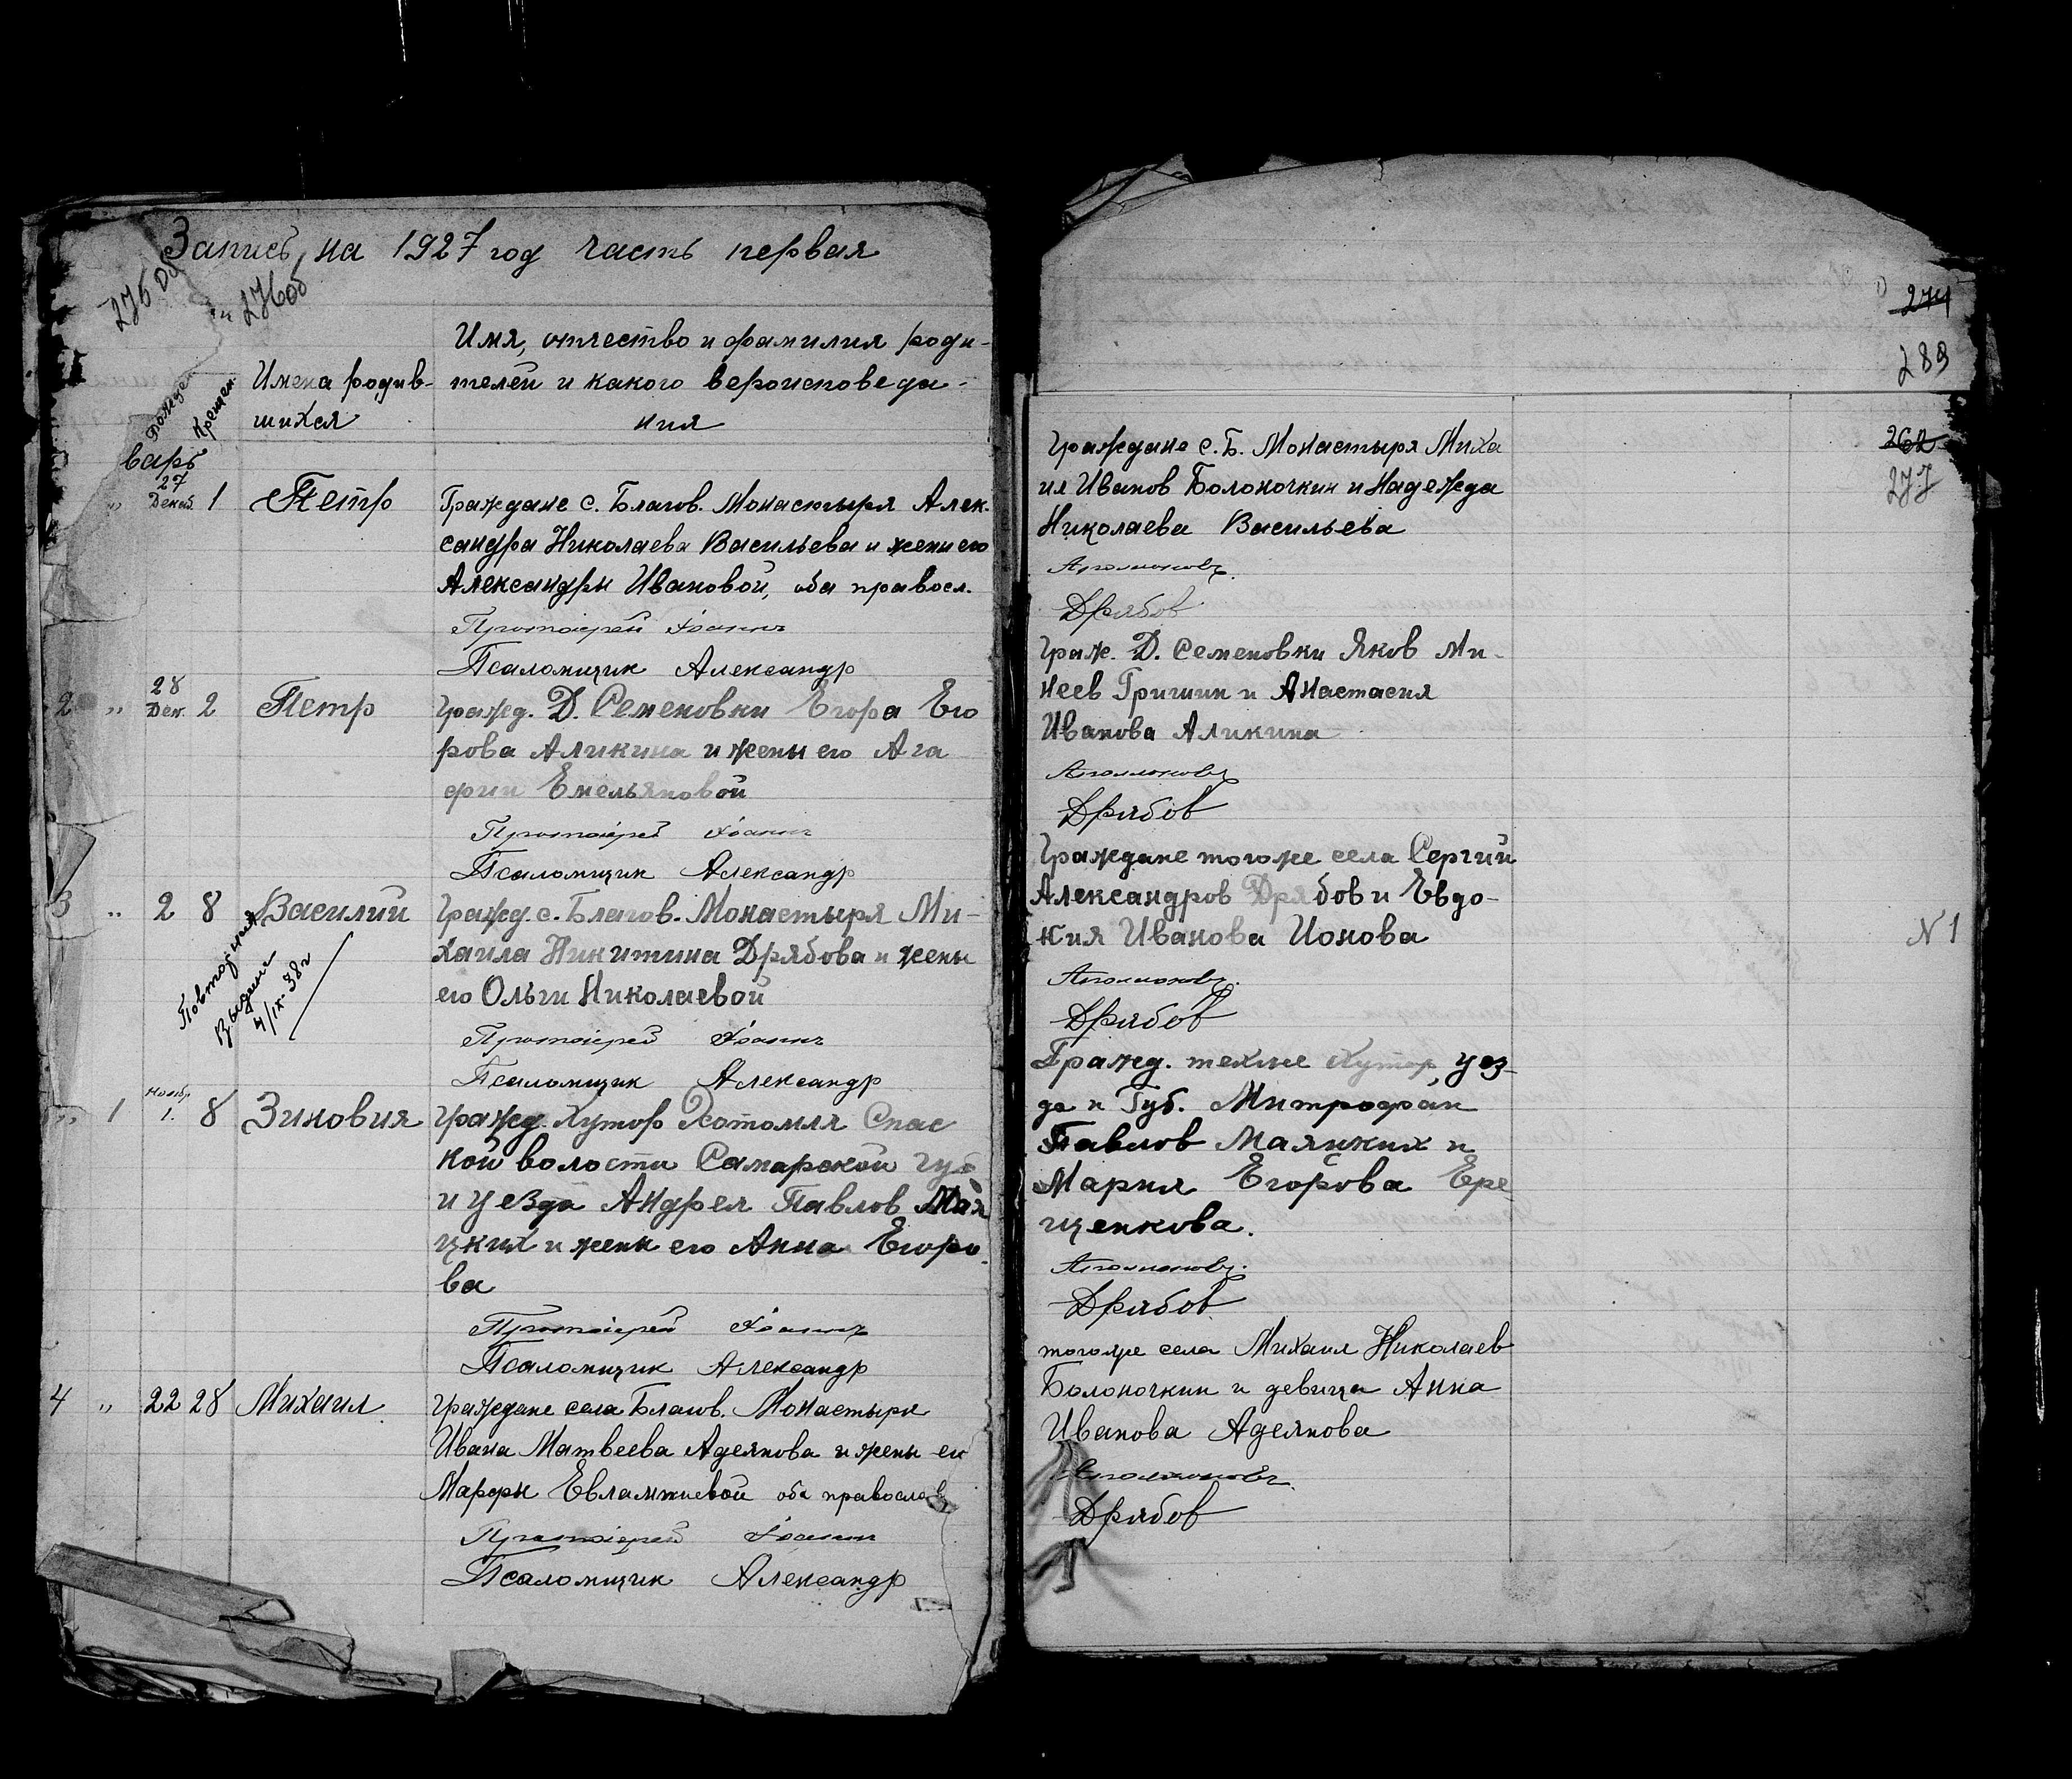 Запись на 1927 год часть первая
275 об
и 276 об
Рожден
Крещен.
Имена родив-
шихся
Имя, отчество и фамилия роди-
телей и какого вероисповеда-
ния
варь
" 27 Декаб. 1 Петр
Граждане с. Благов. Монастыря Алек-
сандра Николаева Васильева и жены его
Александры Ивановой, оба правосл.
Протоіерей Іоаннъ
Псаломщик Александр
2 " 28 Дек. 2 Петр
Гражд. Д. Семеновки Егора Его
рова Аликина и жены его Ага
фии Емельяновой
Протоіерей Іоаннъ
Псаломщик Александр
3 " 2 8 Василий
Повторная
Выдана
4/IX-38 г
Гражд. с. Благов. Монастыря Ми-
хаила Никитина Дрябова и жены
его Ольги Николаевой
Протоіерей Іоаннъ
Псаломщик Александр
" 1 Ноябр. 1. 8 Зиновия
Гражд. Хутор Хотомля Спас
кой волости Самарской губ
и уезда Андрея Павлов Мая
цких и жены его Анна Егоро-
ва
Протоіерей Іоаннъ
Псаломщик Александр
4 " 22 28 Михаил
Граждане села Благов. Монастыря
Ивана Матвеева Аделнова и жены ег
Марфы Евлампиевой оба православ
Протоіерей Іоаннъ
Псаломщик Александр
274
289
262
277
Граждане с. Б. Монастыря Миха
ил Иванов Болоночкин и Надежда
Николаева Васильева
Дрябов
Граж. Д. Семеновки Яков Ми-
неев Гришин и Анастасия
Иванова Аликина
Дрябов
Граждане тогоже села Сергий
Александров Дрябов и Евдо-
кия Иванова Ионова
N 1
Дрябов
Гражд. техже Хутор, уез-
да и Губ. Митрофан
Павлов Маяцких и
Мария Егорова Ере
щенкова.
Дрябов
тогоже села Михаил Николаев
Болоночкин и девица Анна
Иванова Аделнова
Дрябов